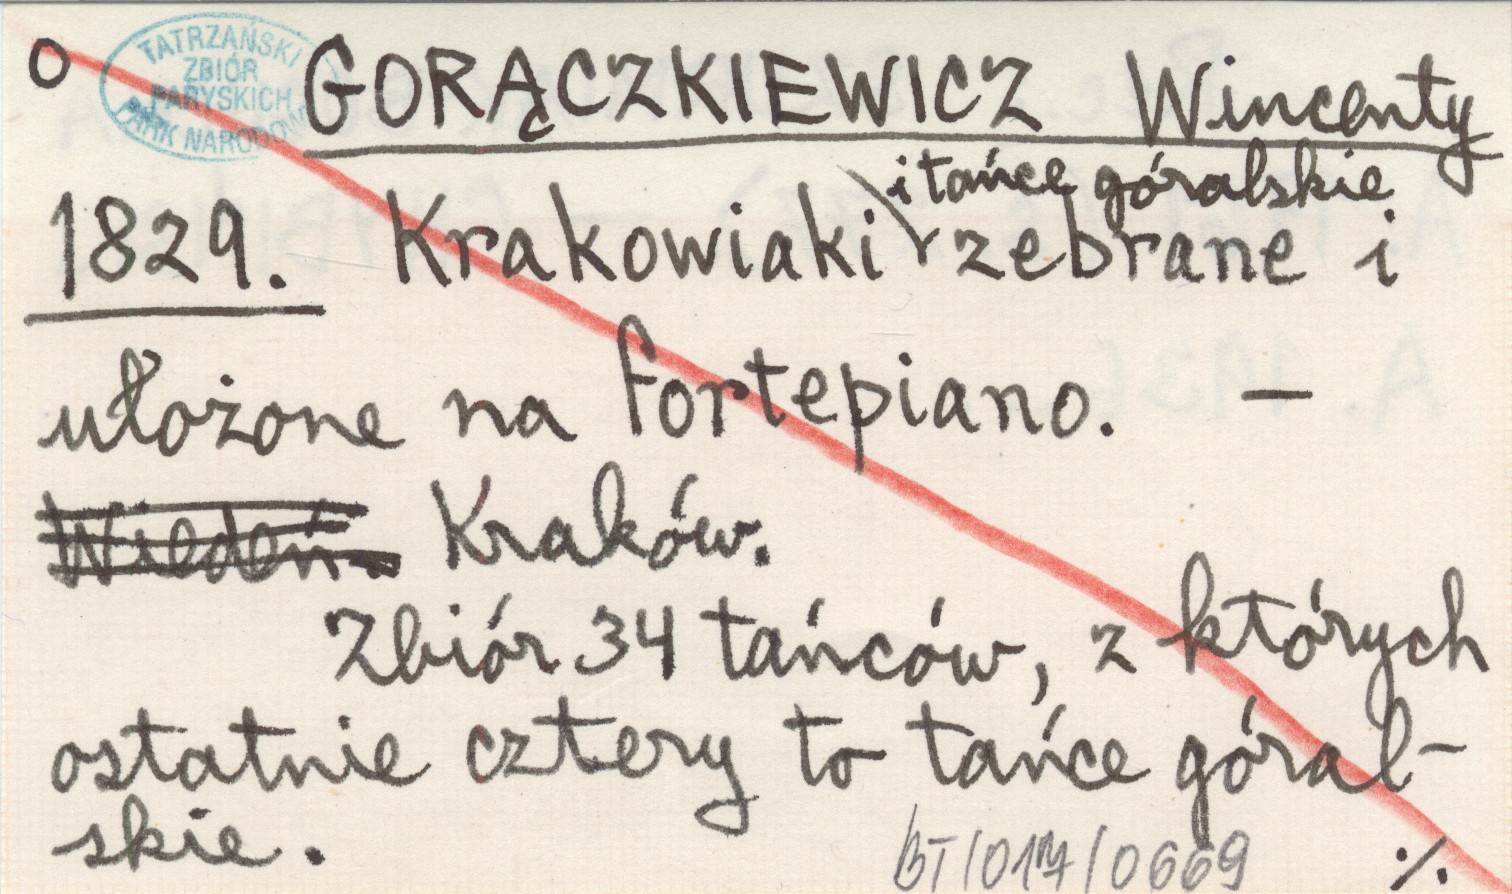 O
TATRZAŃSKI
ZBIÓR
PARYSKICH
PARK NARODOW
GORĄCZKIEWICZ Wincenty
i tańce góralskie
1829. Krakowiaki zebrane i
ułożone na fortepiano. —
Wiedeń. Kraków.
Zbiór 34 tańców, z których
ostatnie cztery to tańce góral-
skie.
BT/017/0669
./.